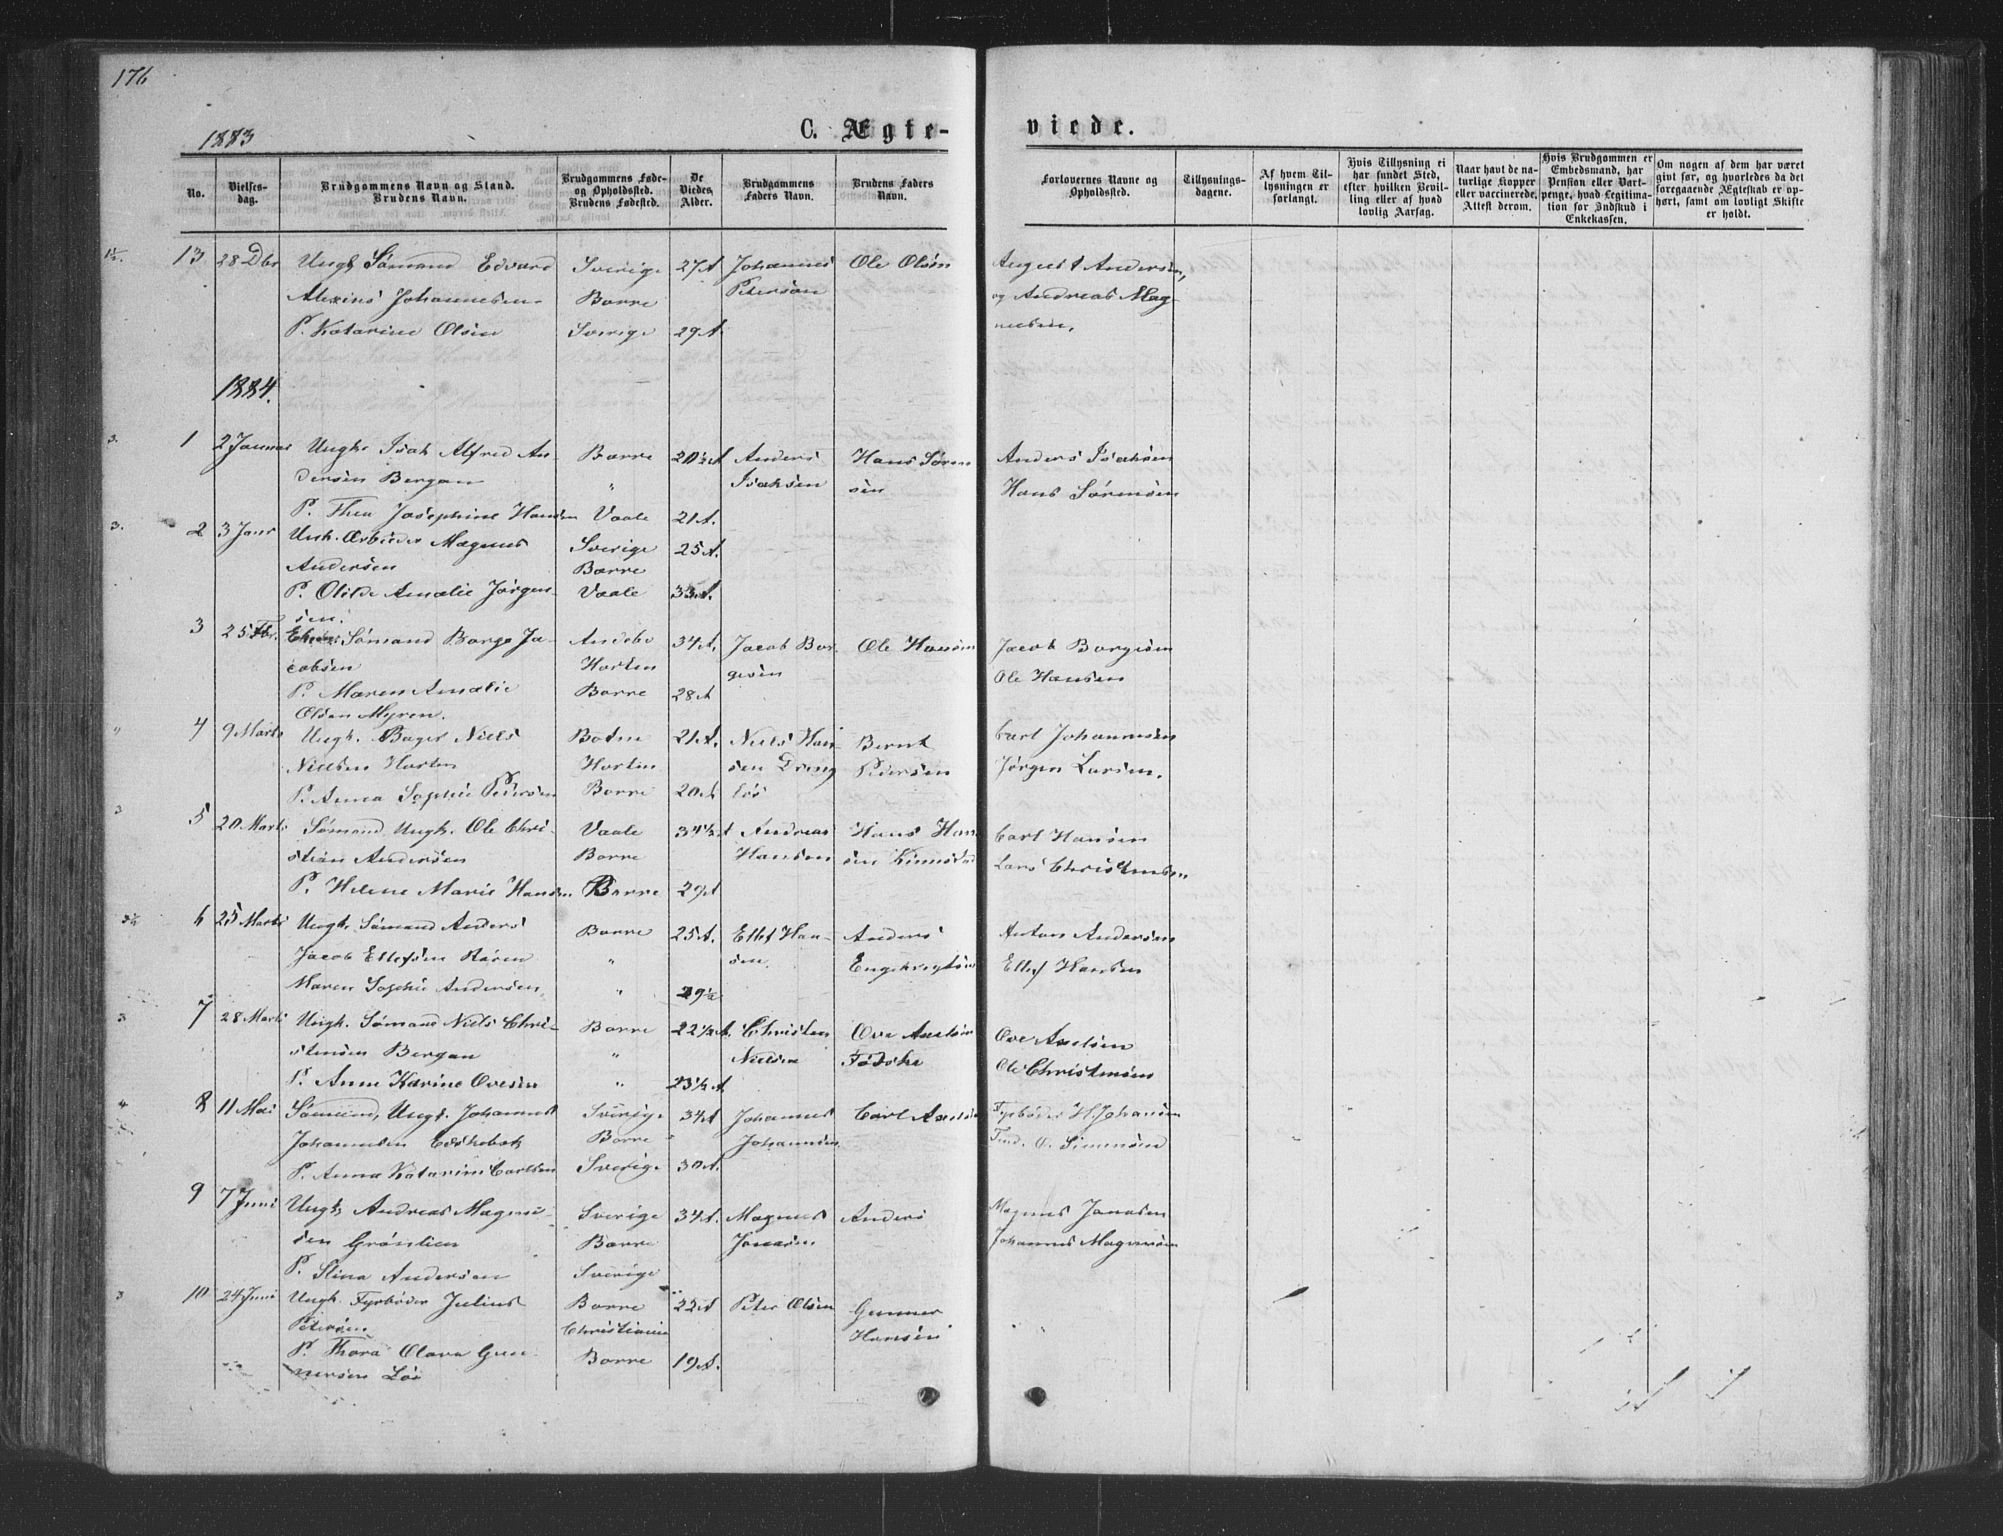 176
1883
C. Ægte-
viede.
No.
Vielses-
dag.
Brudgommens Navn og Stand.
Brudens Navn.
Brudgommens Føde-
og Opholdssted.
Brudens Fødested.
De
Viedes
Alder.
Brudgommens
Faders Navn.
Brudens Faders
Navn.
Forlovernes Navne og
Opholdssted.
Tillysnings-
dagene.
Af hvem Til-
lysningen er
forlangt.
Hvis Tillysning ei
har fundet Sted,
efter hvilken Bevil-
ling eller af hvad
lovlig Aarsag.
Naar havt de na-
turlige Kopper
eller vaccinerede,
Attest derom.
Hvis Brudgommen er
Embedsmand, har
Pension eller Vart-
penge, hvad Legitima-
tion for Indskud i
Enkekassen.
Om nogen af dem har været
givt før, og hvorledes da det
foregaaende Ægteskab er op-
hørt, samt om lovligt Skifte
er holdt.
13 28 Dbr Ungk Sømand Edvard Sverige 27 A Johannes Ole Olsen August Andersen,
Alexius Johannesen Borre Peterson og Andreas Mag-
P. Katarine Olsen Sverige 29 A nusen,
1884.
3. 1 2 Januar Ungk. Isak Alfred An- Borre 20½ A Anders Hans Søren Anders Isaksen
dersen Bergan " Isaksen sen Hans Sørensen
P. Thea Josephine Hansen Vaale 21 A.
3. 2 3 Janr Unk. Arbeider Magnus Sverige 25 A.
Andersen Borre
P. Olilde Amalie Jørgen- Vaale 33 A.
sen.
3 25 Fbr. Sømand Borge Ja- Andebo 34 A. Jacob Bor- Ole Hansen Jacob Borgesen
cobsen Horten gesen Ole Hansen
P. Maren Amalie Borre 28 A
Olsen Myren.
" 4 9 Marts Ungk. Bager Niels 21 A. Niels Han- Bernt Carl Johannesen
Nielsen Horten Horten sen Pedersen Jørgen Larsen.
P. Anna Sophie Pedersen Borre 20 A
3 5 20 Marts Sømand Ungk. Ole Chri- Vaale 34½ A Andreas Hans Han Carl Hansen
stian Andersen Borre Hansen sen Lars Christensen
P. Helene Marie Hansen Borre 29 A
6 25 Marts Ungk. Sømand Anders Borre 25 A. Ellef Han- Anders Anton Andersen
Jacob Ellefsen " sen. Engebregtsen Ellef Hansen
Maren Sophie Andersen " 29½
3 7 28 Marts Ungk. Sømand Niels Chri- Borre 22½ A. Christen Ove Axelsen Ove Axelsen
stensen Bergan " Nielsen Ole Christensen
P. Anne Karine Ovesen " 23½ A
4 8 11 Mai Sømand, Ungk. Johannes Sverige 34 A Johannes Carl Axelsen Fyrbøder H. Johansen
Johannesen Borre Johannesen O. Simensen
P. Anna Katarine Carlsen Sverige 30 A.
9 7 Juni Ungk. Andreas Magnu- Sverige 34 A. Magnus Anders Magnus Jonasen
sen Grønlien Borre Jonasen Johannes Magnusen
P. Stina Andersen Sverige
3 10 24 Juni Ungk. Fyrbøder Julius Borre 22 A Peter Olsen Gunner
Petersen Christiania Hansen
P. Thora Olava Gun- Borre 19 A.
nersen Løi